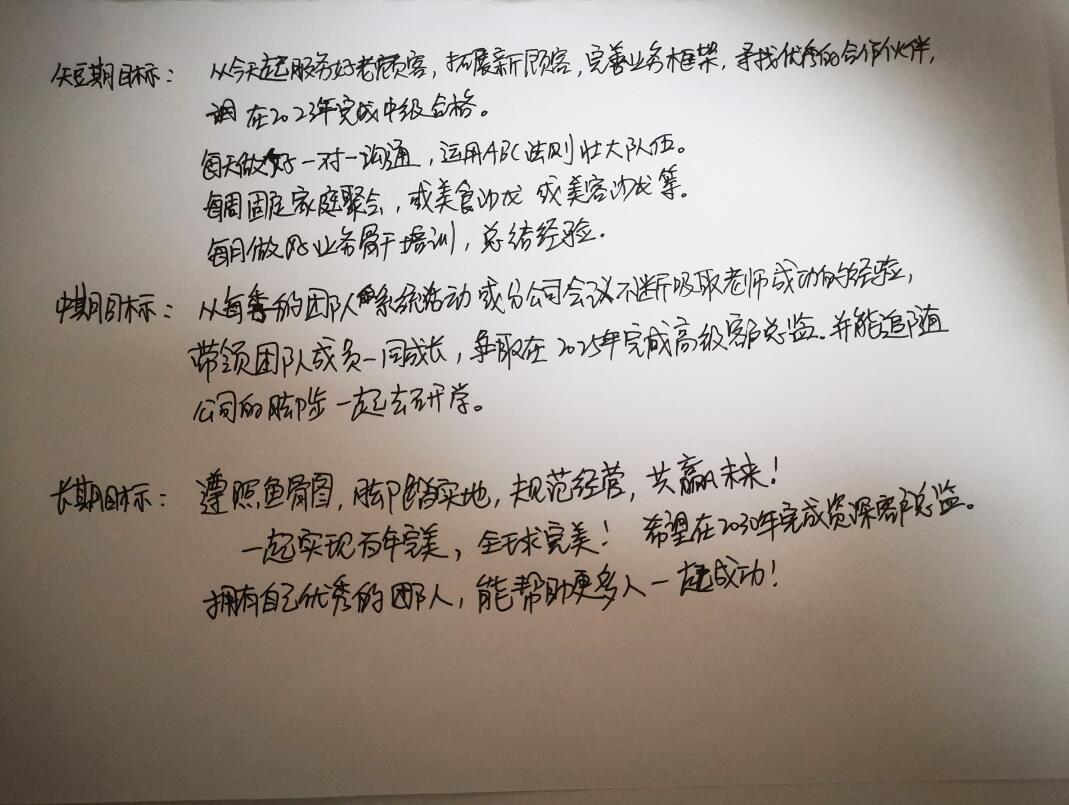 短期目标：从今天起服务好老顾客，拓展新顾客，完善业务框架，寻找优秀的合作伙伴，
在2023年完成中级合格。
每天做好一对一沟通，运用ABC法则壮大队伍。
每周固定家庭聚会，或美食沙龙 或美容沙龙等。
每月做好业务骨干培训，总结经验。
中期目标：从每季的团队系统活动或分公司会议不断吸取老师成功的经验，
带领团队成员一同成长，争取在2025年完成高级客户总监。并能追随
公司的脚步一起去研学。
长期目标：遵照鱼骨图，脚踏实地，规范经营，共赢未来！
一起实现百年完美，全球完美！希望在2030年完成资深客户总监。
拥有自己优秀的团队，能帮助更多人一起成功！